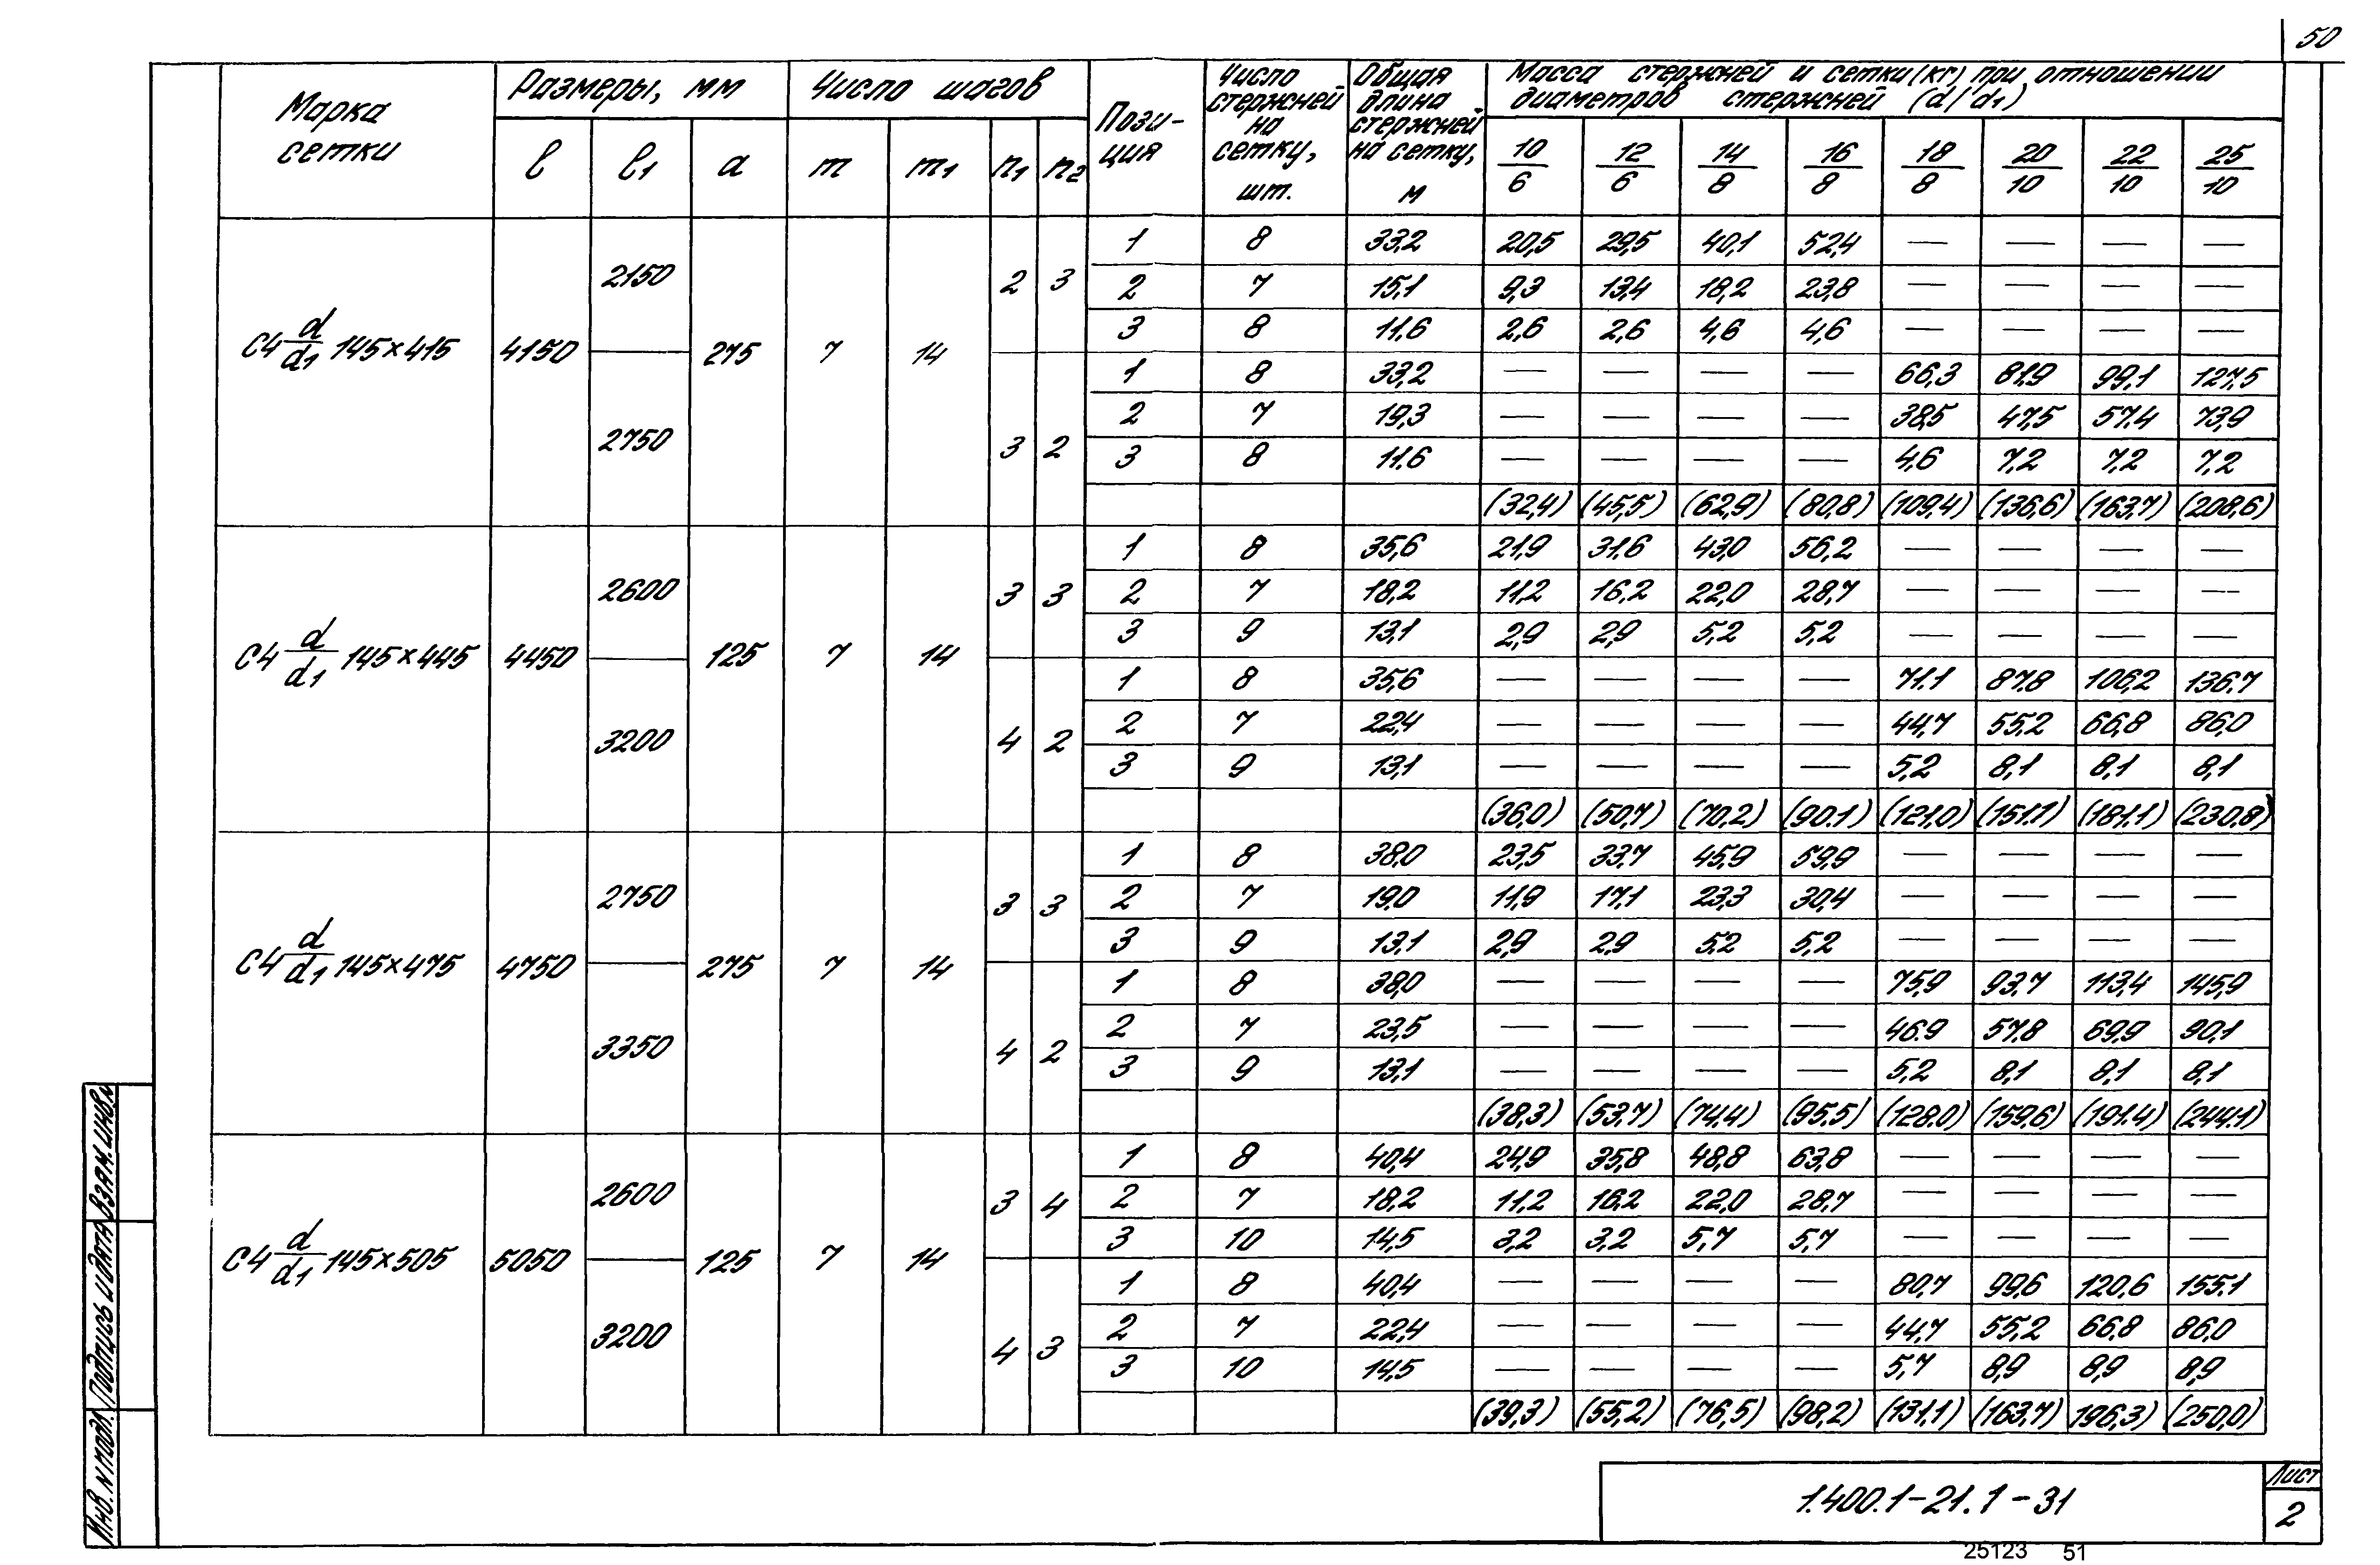 50
Марка сетки | Размеры, мм | Число шагов | Пози-ция | Число стержней на сетку, шт. | Общая длина стержней на сетку, м | Масса стержней и сетки (кг) при отношении диаметров стержней (d/d1)
l | l1 | a | m | m1 | n1 | n2 | 10/6 | 12/6 | 14/8 | 16/8 | 18/8 | 20/10 | 22/10 | 25/10
С4 d/d1 145×415 | 4150 | 2150 | 275 | 7 | 14 | 2 | 3 | 1 | 8 | 33,2 | 20,5 | 29,5 | 40,1 | 52,4 | — | — | — | —
2 | 7 | 15,1 | 9,3 | 13,4 | 18,2 | 23,8 | — | — | — | —
3 | 8 | 11,6 | 2,6 | 2,6 | 4,6 | 4,6 | — | — | — | —
2750 | 3 | 2 | 1 | 8 | 33,2 | — | — | — | — | 66,3 | 81,9 | 99,1 | 127,5
2 | 7 | 19,3 | — | — | — | — | 38,5 | 47,5 | 57,4 | 73,9
3 | 8 | 11,6 | — | — | — | — | 4,6 | 7,2 | 7,2 | 7,2
(32,4) | (45,5) | (62,9) | (80,8) | (109,4) | (136,6) | (163,7) | (208,6)
С4 d/d1 145×445 | 4450 | 2600 | 125 | 7 | 14 | 3 | 3 | 1 | 8 | 35,6 | 21,9 | 31,6 | 43,0 | 56,2 | — | — | — | —
2 | 7 | 18,2 | 11,2 | 16,2 | 22,0 | 28,7 | — | — | — | —
3 | 9 | 13,1 | 2,9 | 2,9 | 5,2 | 5,2 | — | — | — | —
3200 | 4 | 2 | 1 | 8 | 35,6 | — | — | — | — | 71,1 | 87,8 | 106,2 | 136,7
2 | 7 | 22,4 | — | — | — | — | 44,7 | 55,2 | 66,8 | 86,0
3 | 9 | 13,1 | — | — | — | — | 5,2 | 8,1 | 8,1 | 8,1
(36,0) | (50,7) | (70,2) | (90,1) | (121,0) | (151,1) | (181,1) | (230,8)
С4 d/d1 145×475 | 4750 | 2750 | 275 | 7 | 14 | 3 | 3 | 1 | 8 | 38,0 | 23,5 | 33,7 | 45,9 | 59,9 | — | — | — | —
2 | 7 | 19,0 | 11,9 | 17,1 | 23,3 | 30,4 | — | — | — | —
3 | 9 | 13,1 | 2,9 | 2,9 | 5,2 | 5,2 | — | — | — | —
3350 | 4 | 2 | 1 | 8 | 38,0 | — | — | — | — | 75,9 | 93,7 | 113,4 | 145,9
2 | 7 | 23,5 | — | — | — | — | 46,9 | 57,8 | 69,9 | 90,1
3 | 9 | 13,1 | — | — | — | — | 5,2 | 8,1 | 8,1 | 8,1
(38,3) | (53,7) | (74,4) | (95,5) | (128,0) | (159,6) | (191,4) | (244,1)
С4 d/d1 145×505 | 5050 | 2600 | 125 | 7 | 14 | 3 | 4 | 1 | 8 | 40,4 | 24,9 | 35,8 | 48,8 | 63,8 | — | — | — | —
2 | 7 | 18,2 | 11,2 | 16,2 | 22,0 | 28,7 | — | — | — | —
3 | 10 | 14,5 | 3,2 | 3,2 | 5,7 | 5,7 | — | — | — | —
3200 | 4 | 3 | 1 | 8 | 40,4 | — | — | — | — | 80,7 | 99,6 | 120,6 | 155,1
2 | 7 | 22,4 | — | — | — | — | 44,7 | 55,2 | 66,8 | 86,0
3 | 10 | 14,5 | — | — | — | — | 5,7 | 8,9 | 8,9 | 8,9
(39,3) | (55,2) | (76,5) | (98,2) | (131,1) | (163,7) | 196,3) | (250,0)
Инв. N подл. Подпись и дата Взам. инв. N
1.400.1-21.1-31
Лист
2
25123 51